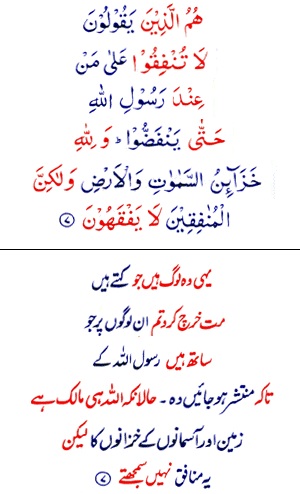 هُمُ الَّذِيْنَ يَقُوْلُوْنَ
لَا تُنْفِقُوْا عَلٰى مَنْ
عِنْدَ رَسُوْلِ اللّٰهِ
حَتّٰى يَنْفَضُّوْا ؕ وَ لِلّٰهِ
خَزَآئِنُ السَّمٰوٰتِ وَالْاَرْضِ وَلٰكِنَّ
الْمُنٰفِقِيْنَ لَا يَفْقَهُوْنَ ﴿۷﴾
یہی وہ لوگ ہیں جو کہتے ہیں
مت خرچ کرو تم ان لوگوں پر جو
ساتھ ہیں رسول اللہ کے
تاکہ منتشر ہو جائیں وہ ۔ حالانکہ اللہ ہی مالک ہے
زمین اور آسمانوں کے خزانوں کا لیکن
یہ منافق نہیں سمجھتے ﴿۷﴾